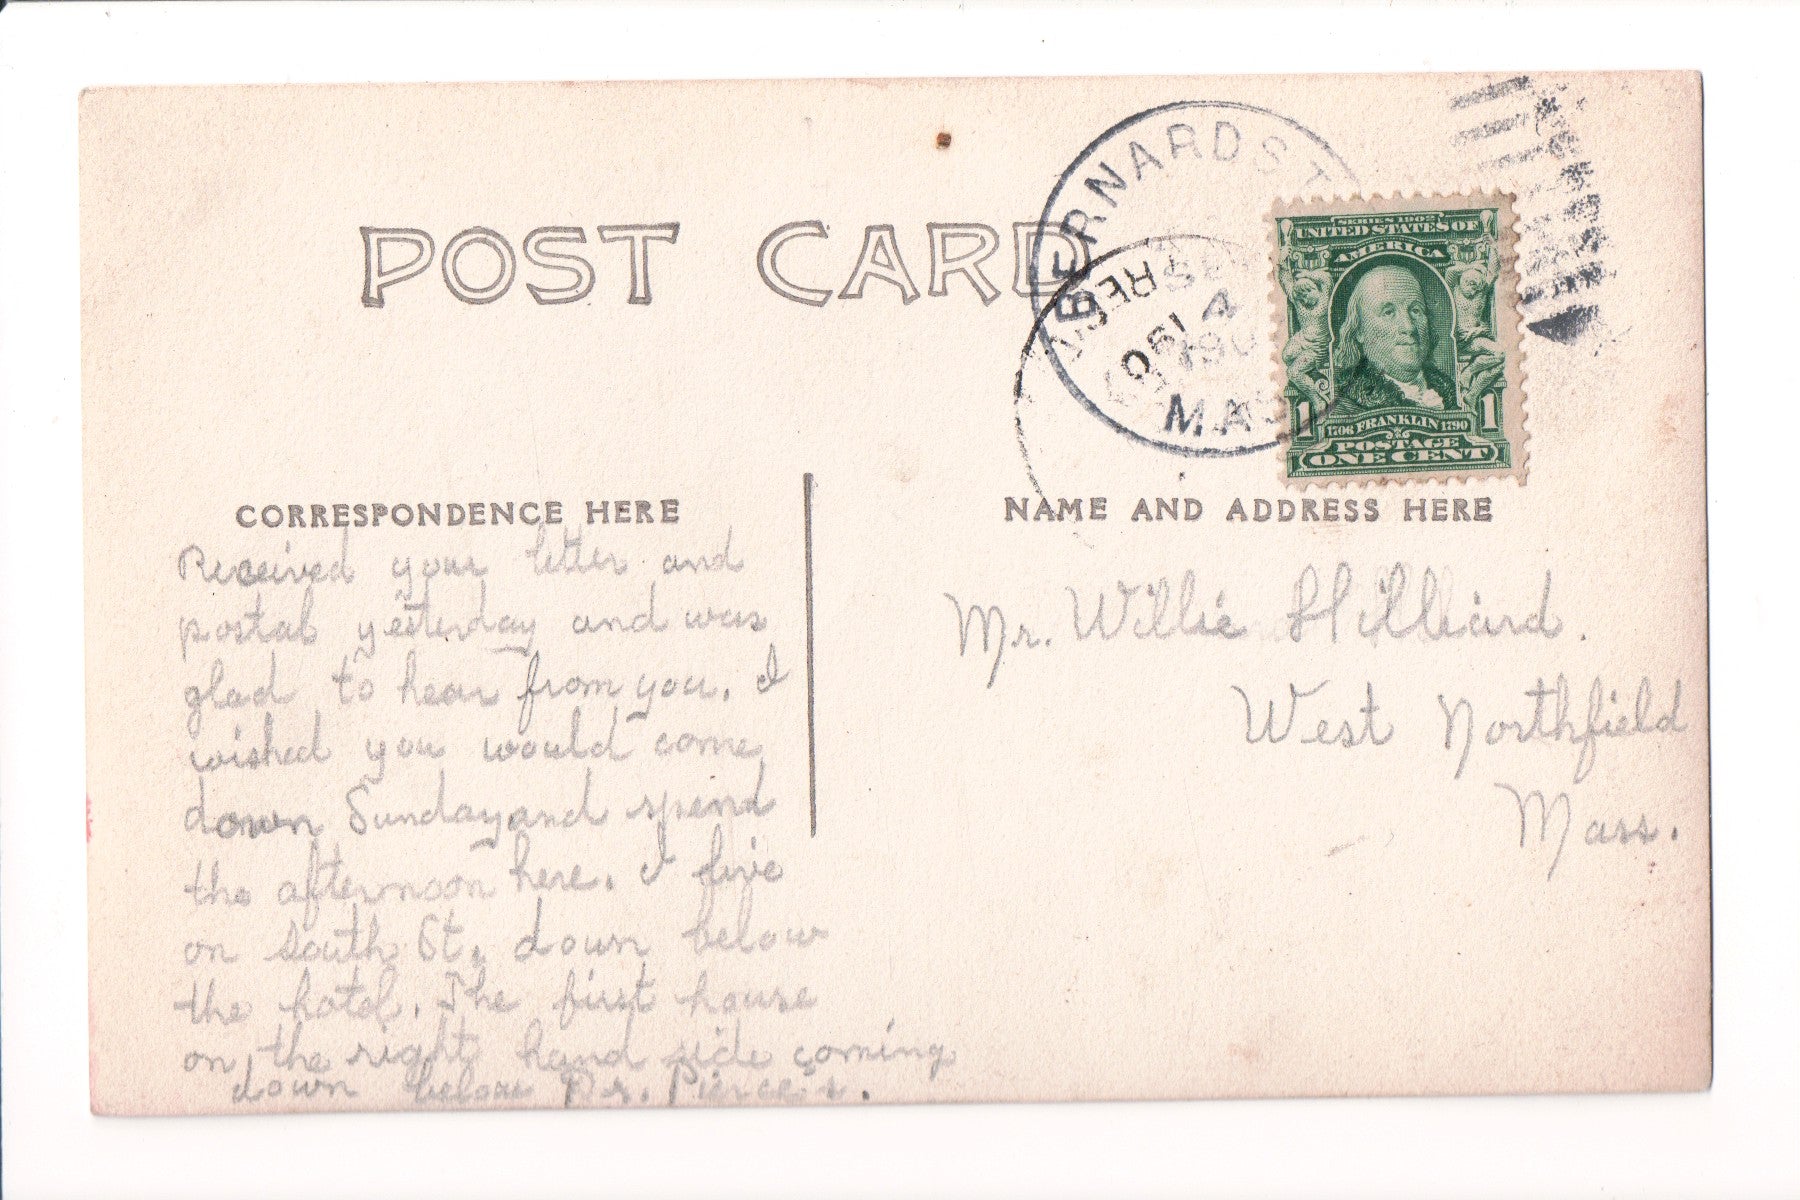 POST CARD
BERNARDSTON
MASS
REC'D
190
4
SERIES 1902
UNITED STATES OF
AMERICA
1 1
1706 FRANKLIN 1790
POSTAGE
ONE CENT
CORRESPONDENCE HERE
Received your letter and
postal yesterday and was
glad to hear from you. I
wished you would come
down Sunday and spend
the afternoon here. I live
on South St. down below
the hotel. The first house
on the right hand side coming
down below Dr. Pierce's.
NAME AND ADDRESS HERE
Mr. Willie Hilliard.
West Northfield
Mass.